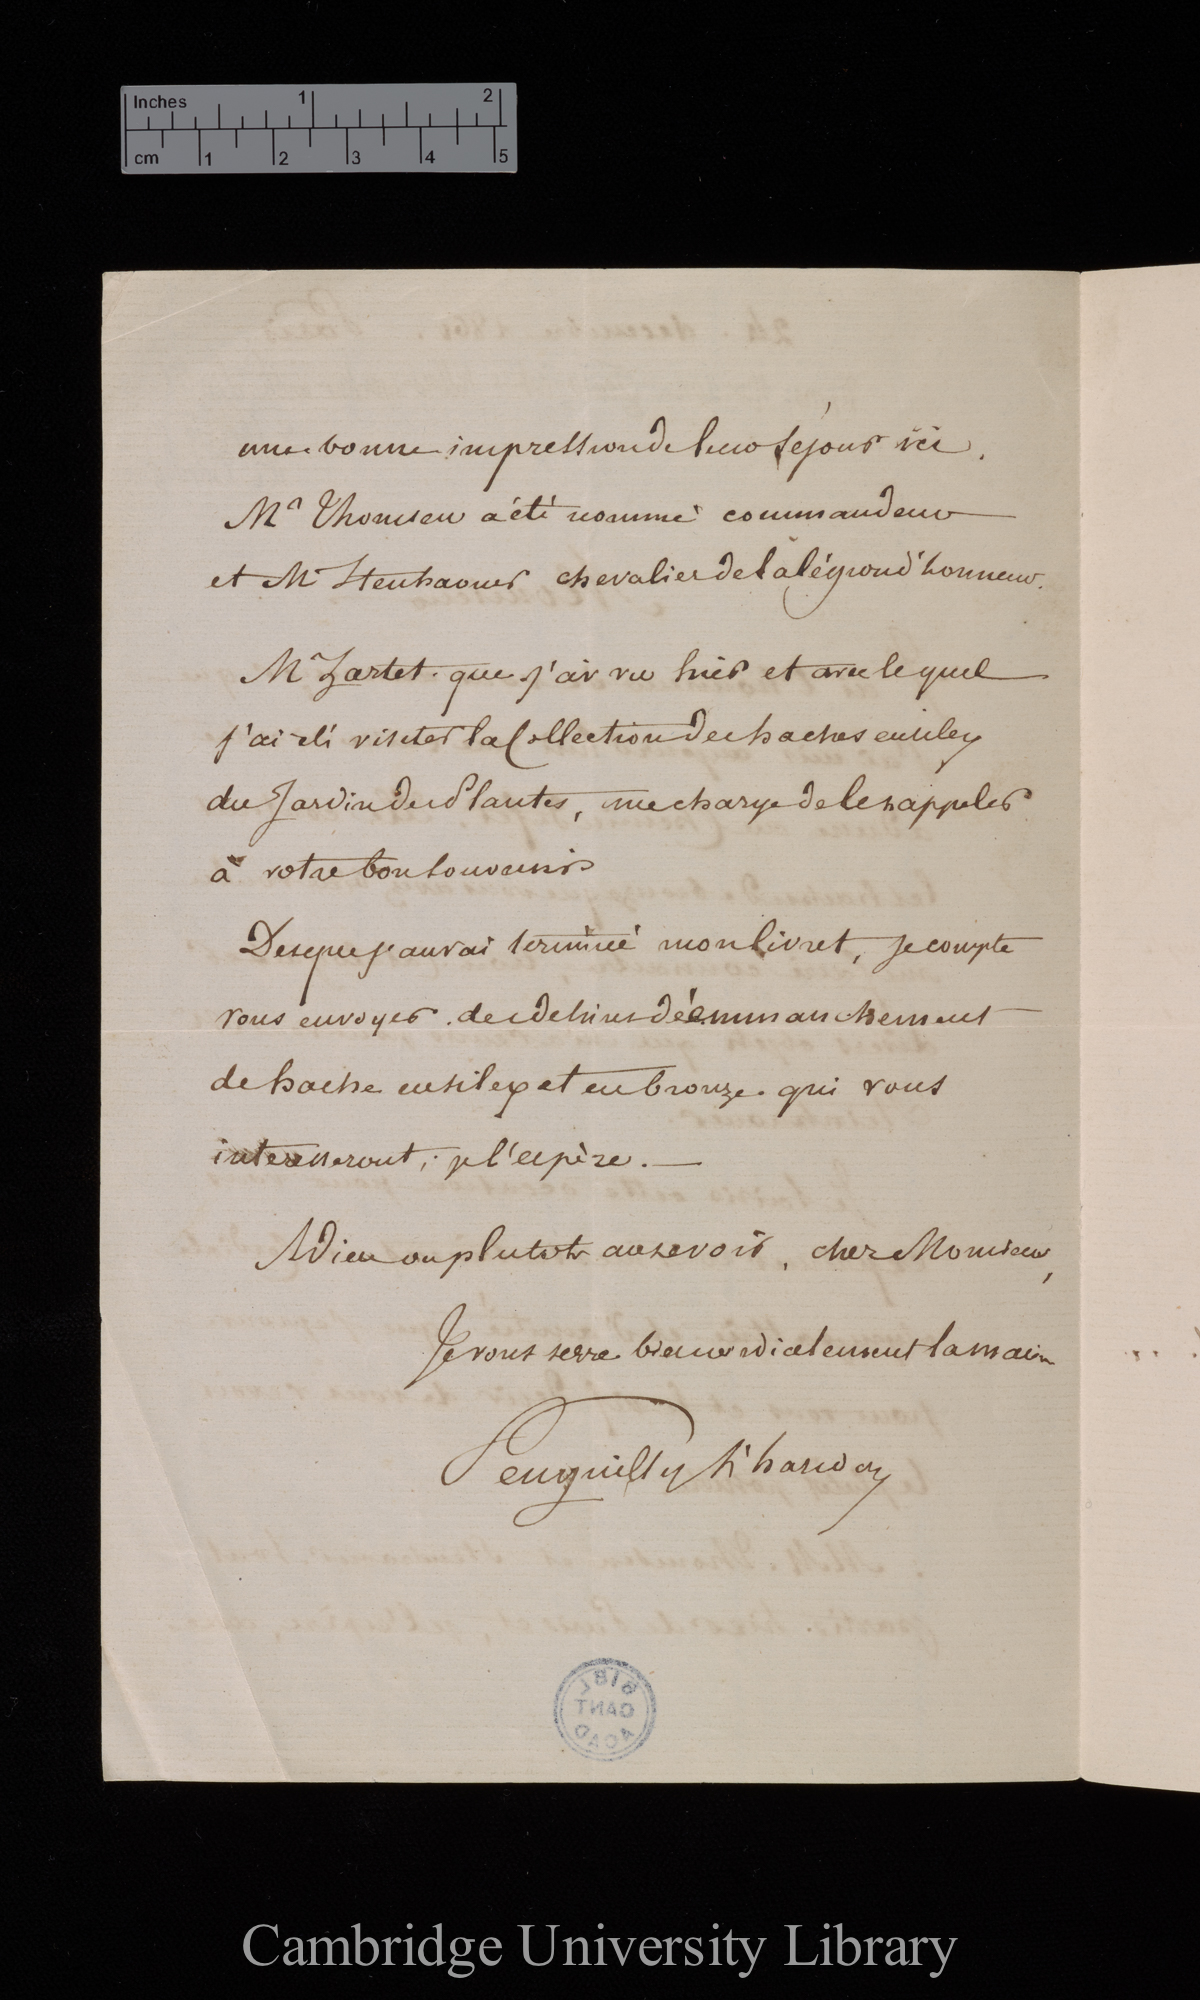 Inches 1 2
cm 1 2 3 4 5
une bonne impression de leur séjour ici.
Mr Thomsen a été nommé commandeur
et Mr Stenhaouer chevalier de la légion d'honneur.
Mr Lartet que j'ai vu hier et avec lequel
j'ai été visiter la Collection des haches en silex
du Jardin des Plantes, me charge de le rappeler
à votre bon souvenir
Des que j'aurai terminé mon livret, je compte
vous envoyer des dessins d'emmanchement
de hache en silex et en bronze qui vous
interesseront, je l'espère. —
Adieu ou plutot au revoir, cher Monsieur,
Je vous serre bien cordialement la main
Penguilly l'haridon
BIBL
CANT
ACAD
Cambridge University Library